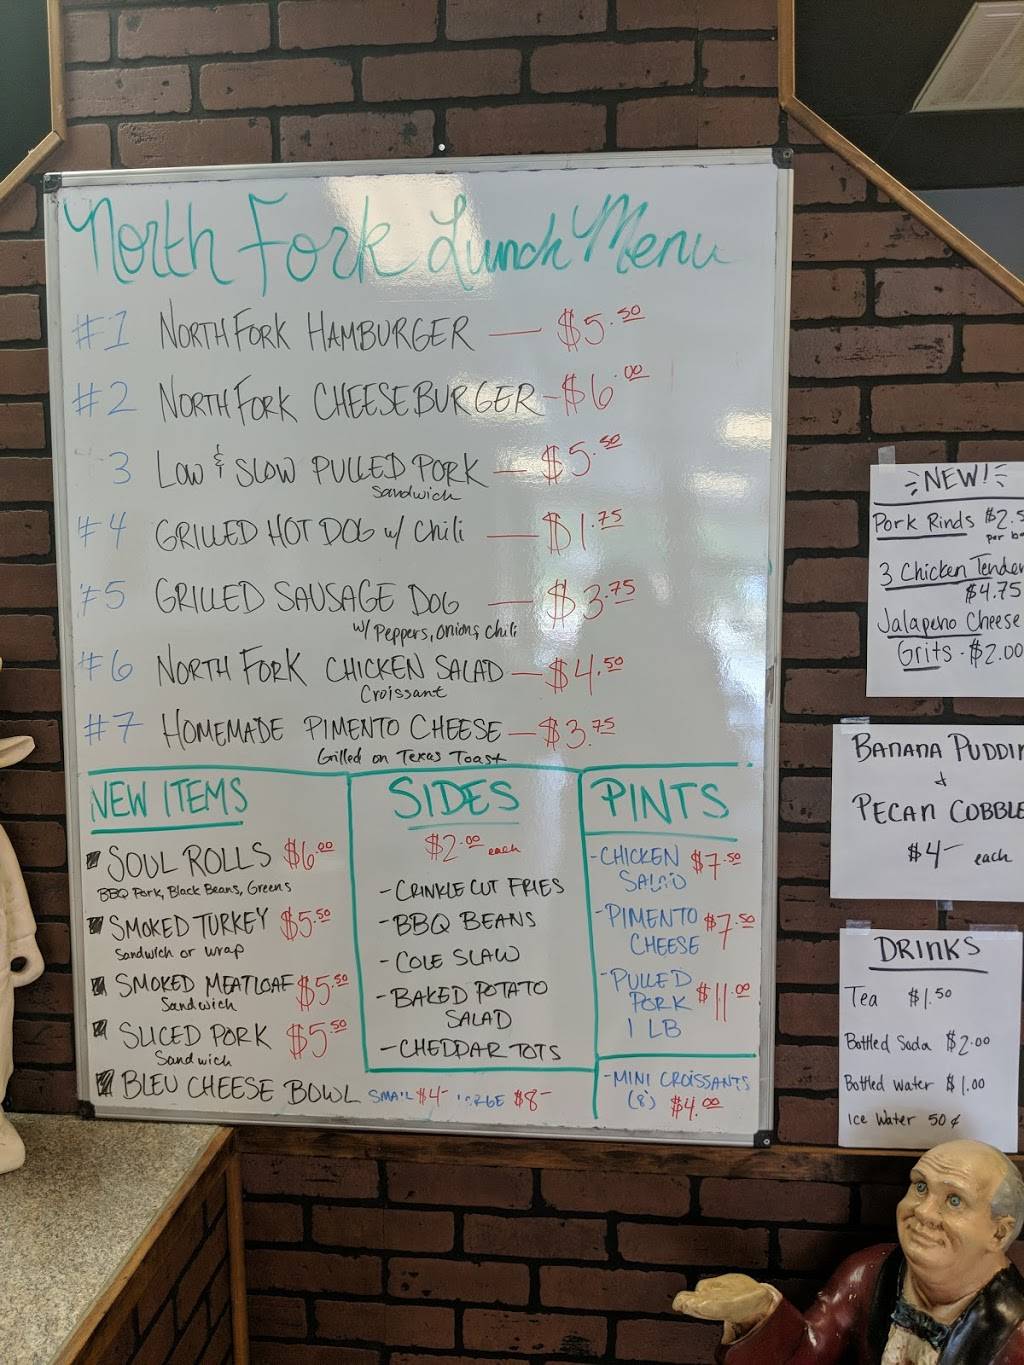 North Fork Lunch Menu
#1 NORTH FORK HAMBURGER — $5.50
#2 NORTH FORK CHEESEBURGER - $6.00
3 LOW & SLOW PULLED PORK — $5.50
Sandwich
#4 GRILLED HOT DOG w/ Chili — $1.75
#5 GRILLED SAUSAGE DOG — $3.75
w/ Peppers, onions, chili
#6 NORTH FORK CHICKEN SALAD — $4.50
Croissant
#7 HOMEMADE PIMENTO CHEESE — $3.75
Grilled on Texas Toast
NEW ITEMS
SOUL ROLLS $6.00
BBQ Pork, Black Beans, Greens
SMOKED TURKEY $5.50
Sandwich or wrap
SMOKED MEATLOAF $5.50
Sandwich
SLICED PORK $5.50
Sandwich
BLEU CHEESE BOWL SMALL $4- LARGE $8-
SIDES
$2.00 each
- CRINKLE CUT FRIES
- BBQ BEANS
- COLE SLAW
- BAKED POTATO
SALAD
- CHEDDAR TOTS
PINTS
- CHICKEN $7.50
SALAD
- PIMENTO $7.50
CHEESE
- PULLED
PORK $11.00
1 LB
- MINI CROISSANTS
(8) $4.00
NEW!
Pork Rinds $2.5
per ba
3 Chicken Tender
$4.75
Jalapeno Cheese
Grits - $2.00
BANANA PUDDIN
&
PECAN COBBLE
$4- each
DRINKS
Tea $1.50
Bottled Soda $2.00
Bottled water $1.00
Ice Water 50¢